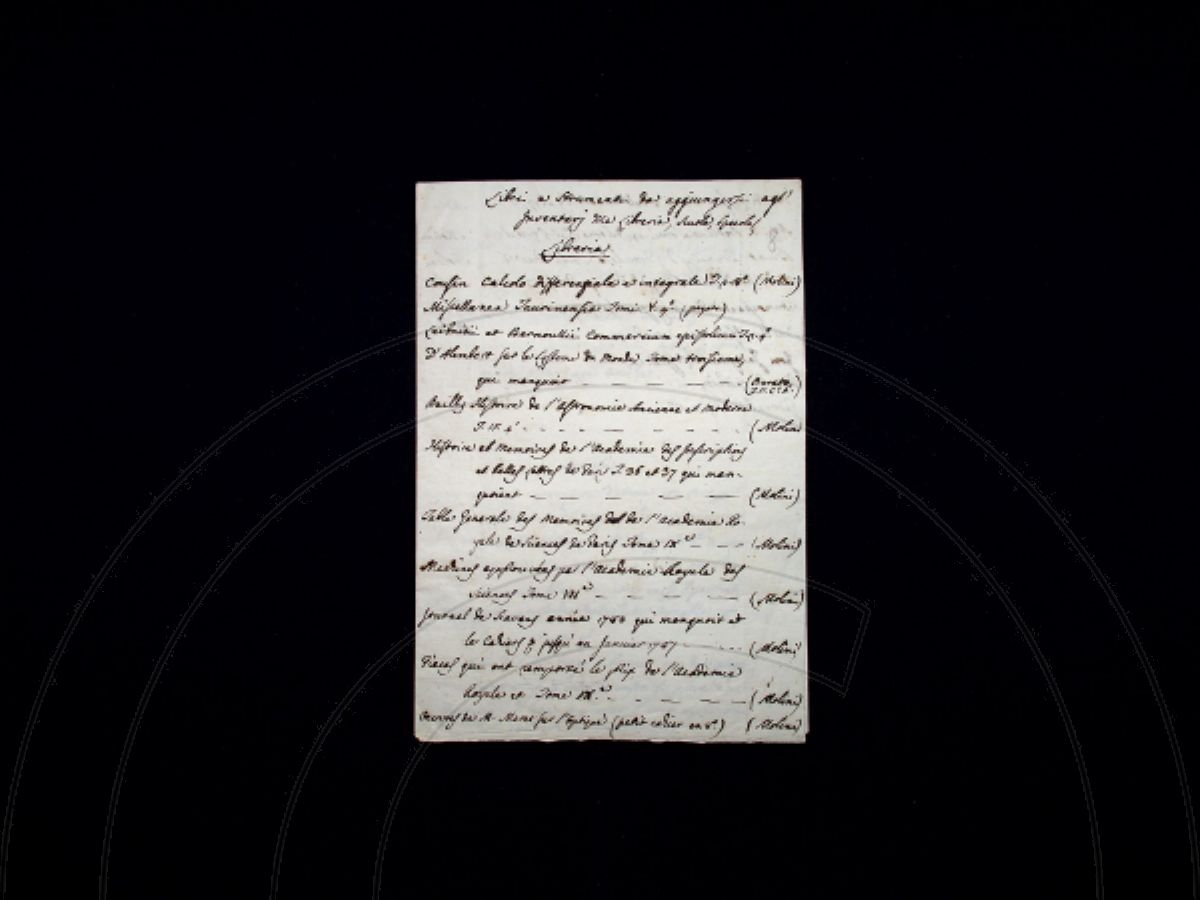 Libri e Strumenti da aggiungersi agl'
Inventarj della Libreria, Scuola, Specola
Libreria
Cousin Calcolo differenziale e integrale T. 8º (Molini)
Miscellanea Taurinensia Tomi V. 4º
Leibnitii et Bernoullii Commercium epistolicum T. 2. 4º
D'Alembert sur le Systeme du Monde Tome troisieme,
qui manquoit
Bailly Histoire de l'Astronomie Ancienne et Moderne
T. IV. 4º (Molini
Histoire et Memoires de l'Academie des Inscriptions
et belles Lettres de Paris T. 36 et 37 qui man-
quoient (Molini)
Table Generale des Memoires de l'Academie Ro-
yale de Sciences de Paris Tome IX (Molini)
Machines approuvées par l'Academie Royale des
Sciences Tome VII (Molini)
Journal de Savans année 1786 qui manquoit et
les Cahiers jusqu'au Janvier 1787 (Molini
Pieces qui ont remporté le Prix de l'Academie
Royale Tome (Molini)
Oeuvres de M. sur l'Optique (petit cahier en 8º) (Molini)